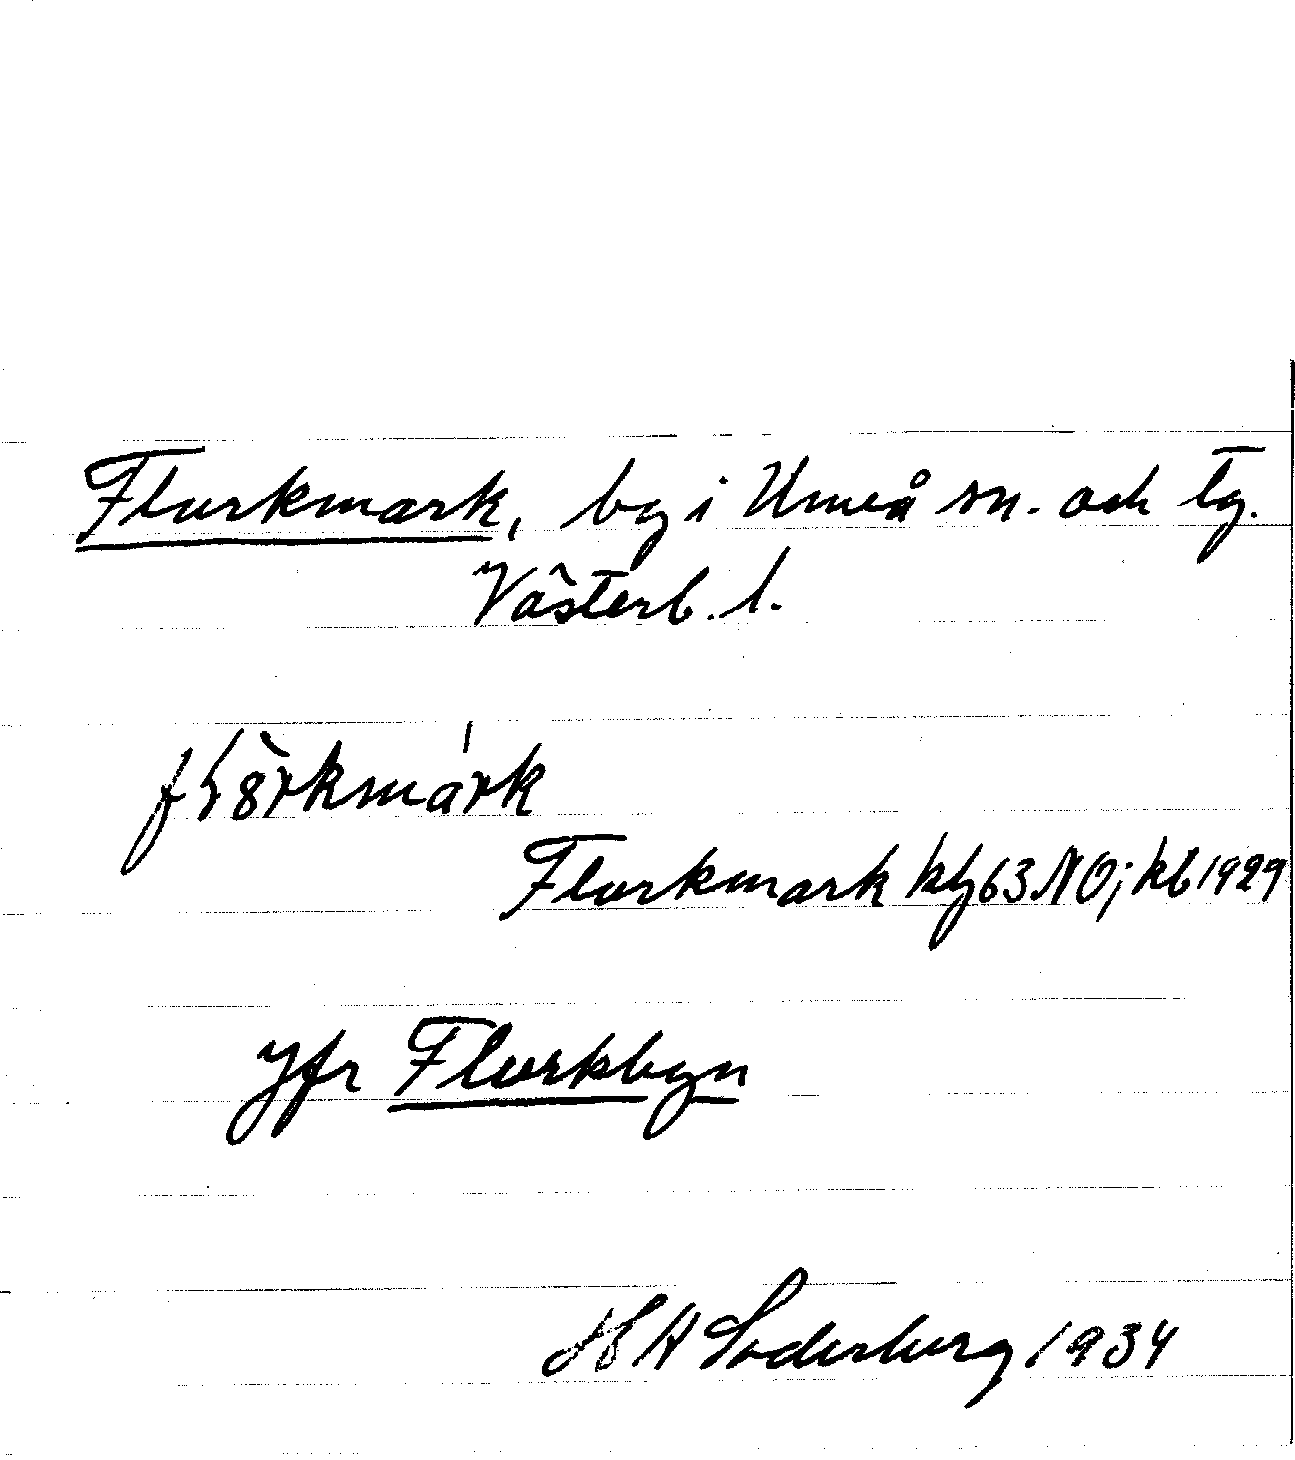 Flurkmark, by i Umeå sn. och tg.
Västerb. l.
Flurkmark bl 63 NO; kb 1929
Jfr Flurkbyn
H A Söderberg 1934